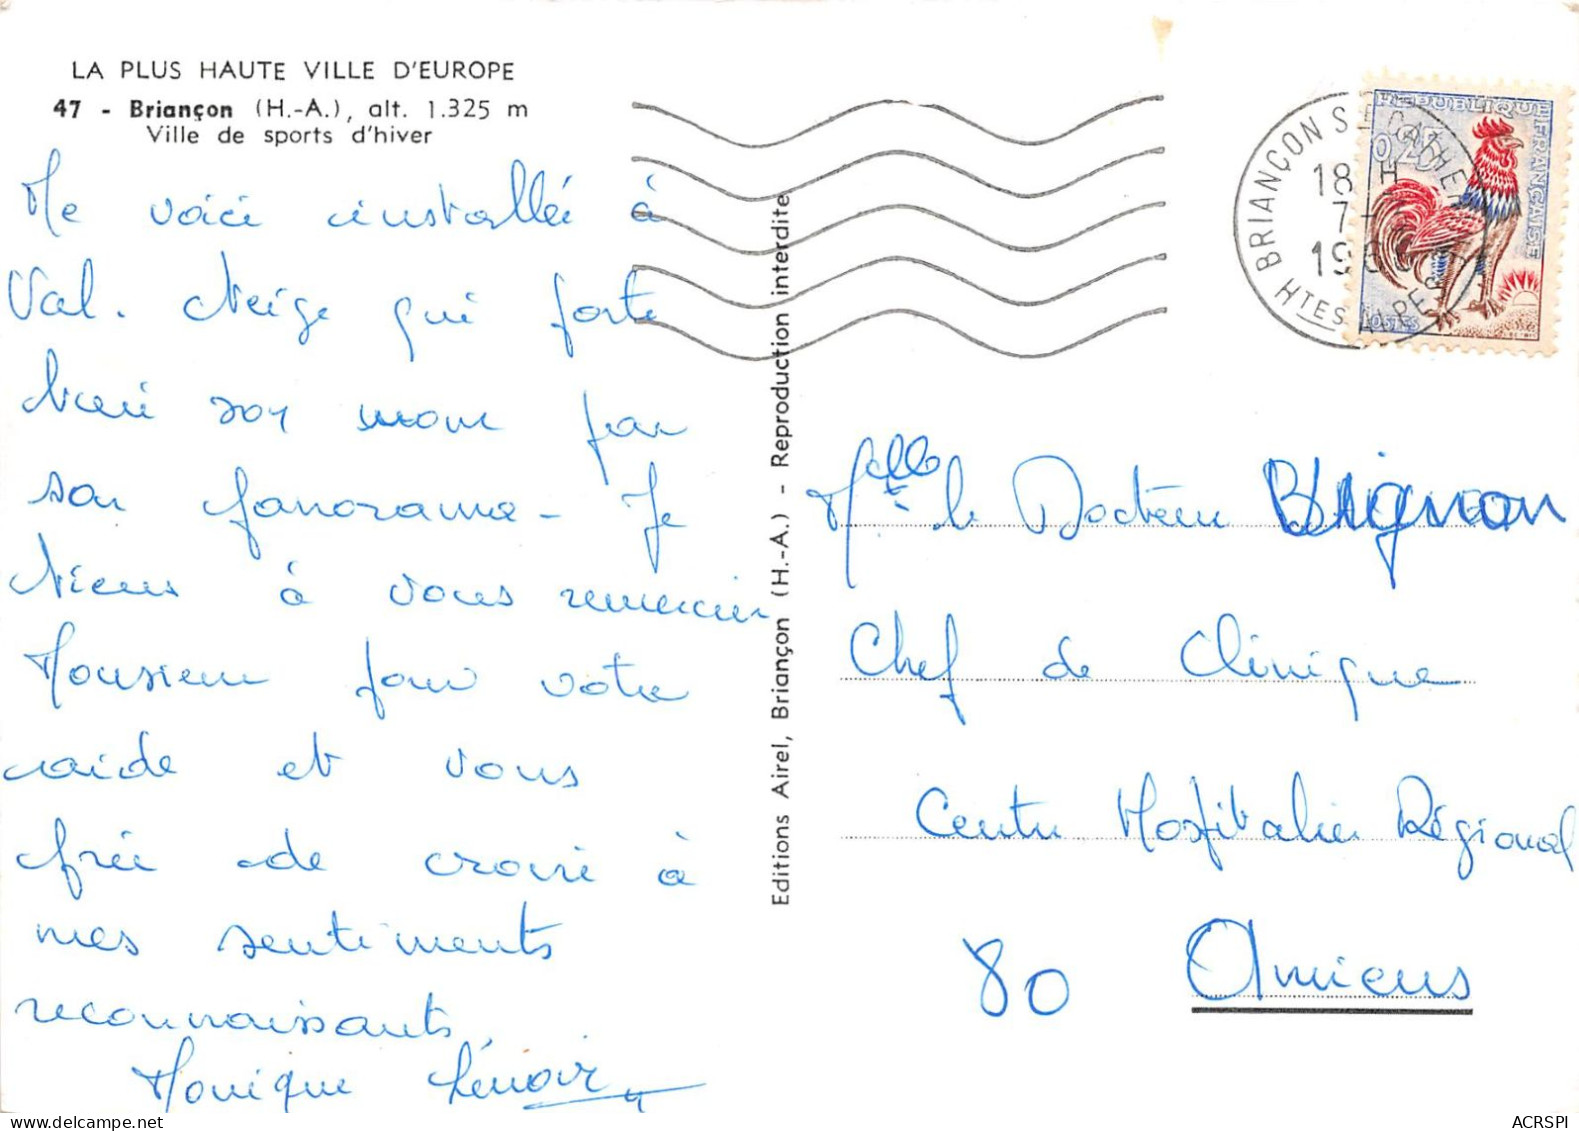 LA PLUS HAUTE VILLE D'EUROPE
47 - Briançon (H.-A.), alt. 1.325 m
Ville de sports d'hiver
Me voici installée à
Val. Neige qui porte
bien son nom par
son panorama - Je
tiens à vous remercier
Monsieur pour votre
aide et vous
prie de croire à
mes sentiments
reconnaissants
Monique Lenoir
Editions Airel, Briançon (H.-A.) - Reproduction interdite
BRIANÇON
18 H
7-
HTES ALPES
REPUBLIQUE FRANÇAISE
0,25
POSTES
Melle le Docteur Brignon
Chef de Clinique
Centre Hospitalier Régional
80 Amiens
ACRSPI